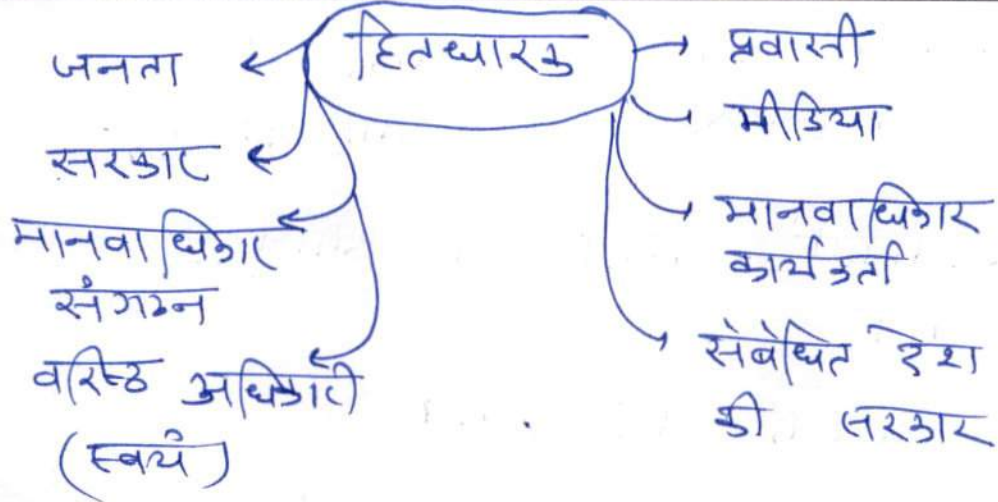 हितधारक
जनता
सरकार
मानवाधिकार
संगठन
वरिष्ठ अधिकारी
(स्वयं)
प्रवासी
मीडिया
मानवाधिकार
कार्यकर्ता
संबंधित देश
की सरकार